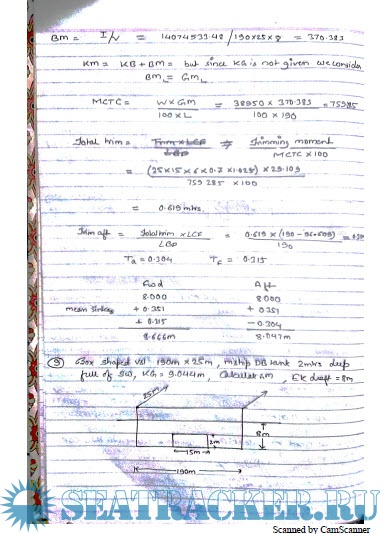 BM = I/V = 14074533.48 / 190x25x8 = 370.383
KM = KB + BM = but since KG is not given we consider
BM_L = GM_L
MCTC = WxGM / 100xL = 38950 x 370.383 / 100 x 190 = 759.285
Total trim = Trim x LCF / LBP ⇒ Trimming moment / MCTC x 100
= (25x15x6x0.7x1.025) x 29.109 / 759.285 x 100
= 0.619 mtrs.
Trim aft = Total trim x LCF / LBP = 0.619 x (190 - 96.609) / 190
Ta = 0.304 Tf = 0.315
Fwd Aft
8.000 8.000
mean sinkage + 0.351 + 0.351
+ 0.315 - 0.304
8.666m 8.047m
③ Box shaped vsl 190m x 25m, DB tank 2mtrs deep
full of SW, KG = 9.044m, Calculate GM, EK draft = 8m
25m
8m
2m
15m
190m
SEATRACKER.RU
Scanned by CamScanner